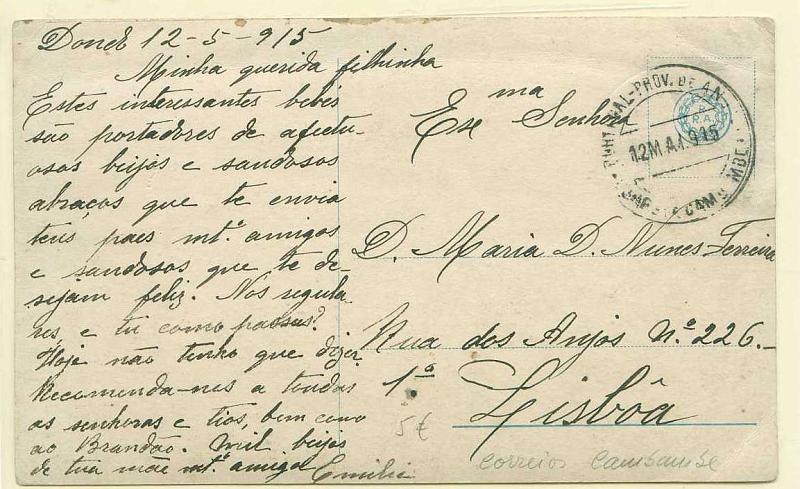 Dondo 12-5-915
Minha querida filhinha
Estes interessantes bebés
são portadores de afectu-
osos beijos e saudosos
abraços que te envia
teus paes mt.º amigos
e saudosos que te de-
sejam feliz. Nós regula-
res, e tu como passas?
Hoje não tenho que dizer
Recomenda-nos a toudas
as senhoras e tios, bem como
ao Brandão. Mil beijos
de tua mãe mt.º amiga
Emilia
Exma Senhora
D. Maria D. Nunes Ferreira
Rua dos Anjos N.º 226-
1.º
Lisbôa
5€
correios Cambambe
PROV. DE AN
12 MAI 915
R.A.